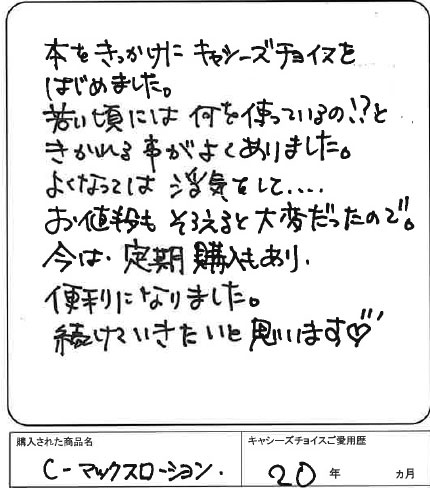 本をきっかけにキャシーズチョイスを
はじめました。
若い頃には何を使っているの!?と
きかれる事がよくありました。
よくなっては浮気をして....
お値段もそろえると大変だったので。
今は、定期購入もあり、
便利になりました。
続けていきたいと思います♡
購入された商品名
キャシーズチョイスご愛用歴
C-マックスローション.
20年 ヵ月